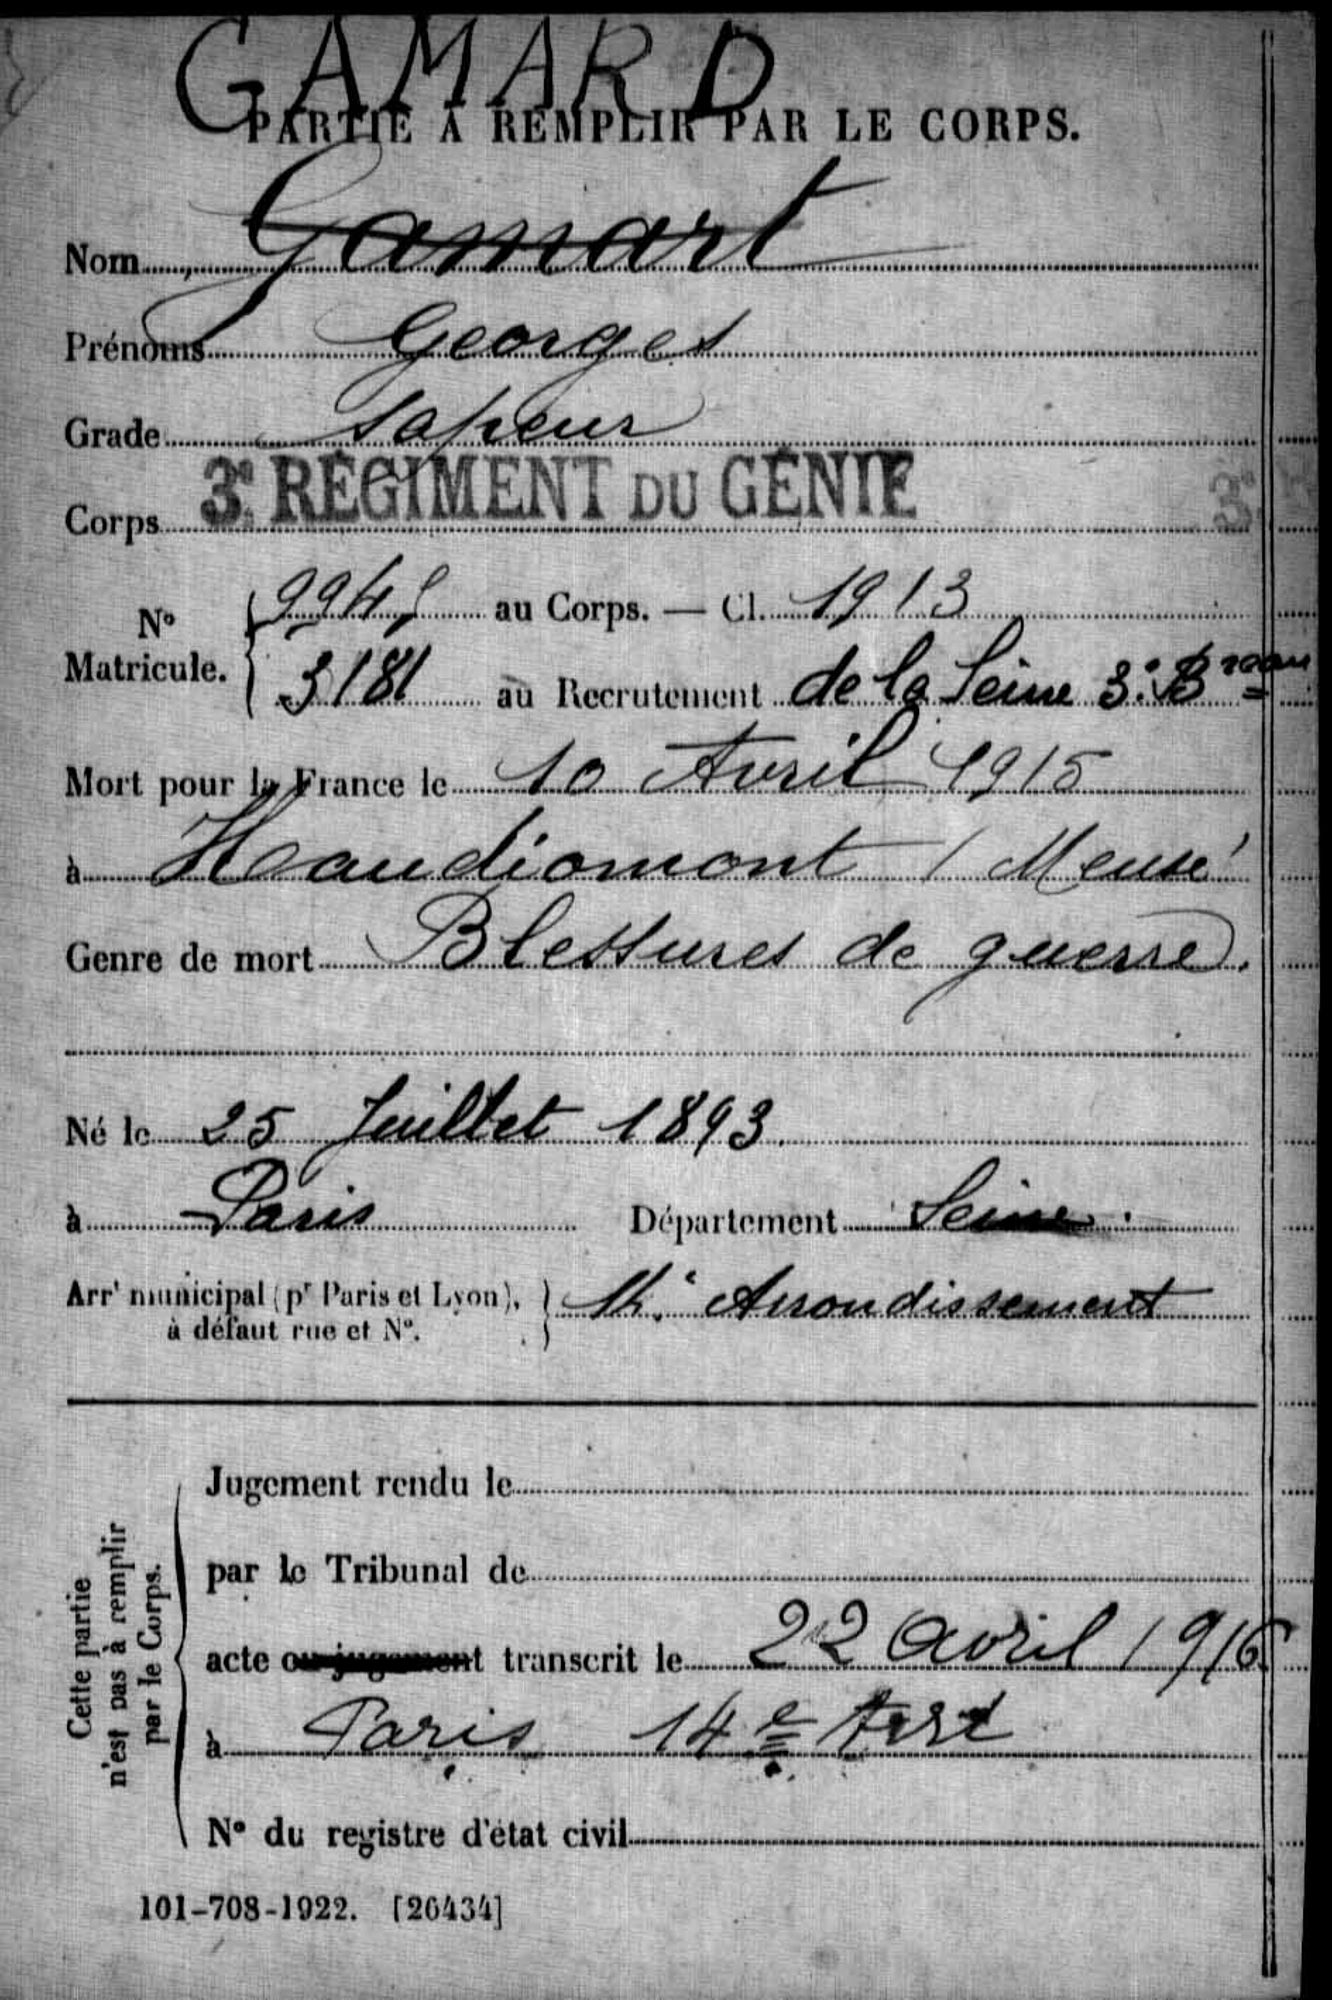 GAMARD
PARTIE À REMPLIR PAR LE CORPS.
Nom Gamart
Prénoms Georges
Grade Sapeur
Corps 3e RÉGIMENT DU GÉNIE
3e
No Matricule. 994 au Corps. — Cl. 1913
3181 au Recrutement de la Seine 3e Breau
Mort pour la France le 10 Avril 1915
à Haudiomont (Meuse)
Genre de mort Blessures de guerre.
Né le 25 Juillet 1893.
à Paris Département Seine.
Arrt municipal (pr Paris et Lyon), à défaut rue et No. Arrondissement
Cette partie n'est pas à remplir par le Corps.
Jugement rendu le
par le Tribunal de
acte ou jugement transcrit le 22 avril 1916
à Paris 14e Arrt
No du registre d'état civil
101-708-1922. [26434]